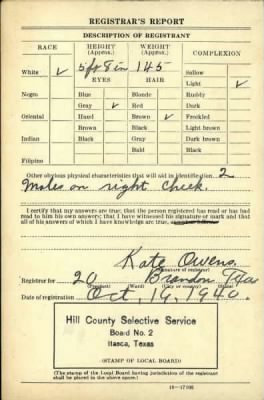 REGISTRAR'S REPORT
DESCRIPTION OF REGISTRANT
RACE HEIGHT (Approx.) WEIGHT (Approx.) COMPLEXION
White ✓ 5 ft 8 in 145 Sallow
EYES HAIR Light ✓
Negro Blue Blonde Ruddy
Gray ✓ Red Dark
Oriental Hazel Brown ✓ Freckled
Brown Black Light brown
Indian Black Gray Dark brown
Bald Black
Filipino
Other obvious physical characteristics that will aid in identification 2
Moles on right Cheek.
I certify that my answers are true; that the person registered has read or has had
read to him his own answers; that I have witnessed his signature or mark and that
all of his answers of which I have knowledge are true,
Kate Owens
(Signature of registrar)
Registrar for 20 Brandon Texas
(Precinct) (Ward) (City or county) (State)
Date of registration Oct. 16, 1940.
Hill County Selective Service
Board No. 2
Itasca, Texas
(STAMP OF LOCAL BOARD)
(The stamp of the Local Board having jurisdiction of the registrant
shall be placed in the above space.)
16—17105